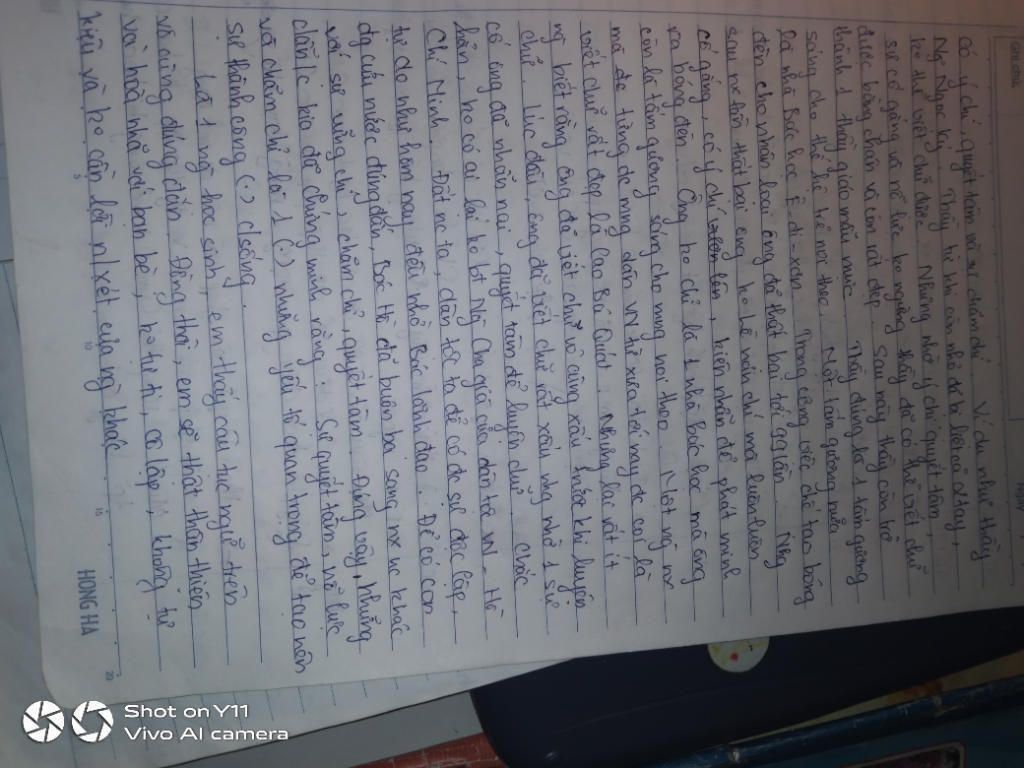 GHI CHÚ
Ngày
có ý chí, quyết tâm và sự chăm chỉ. Ví dụ như thầy
Ng Ngọc Ký. Thầy bị khi còn nhỏ đã bị liệt cả 2 tay,
ko thể viết chữ đc. Nhưng nhờ ý chí quyết tâm,
sự cố gắng và nỗ lực ko ngừng thầy đã có thể viết chữ
được bằng chân và còn rất đẹp. Sau này thầy còn trở
thành 1 thầy giáo mẫu mực. Thầy đúng là 1 tấm gương
sáng cho thế hệ trẻ noi theo. Một tấm gương nữa
là nhà Bác học Ê-đi-xơn. Trong công việc chế tạo bóng
đèn cho nhân loại ông đã thất bại tới lần. Nhg
sau mỗi lần thất bại ông ko hề nản chí mà luôn luôn
cố gắng, có ý chí, kiên nhẫn để phát minh
ra bóng đèn. Ông ko chỉ là 1 nhà bác học mà ông
còn là tấm gương sáng cho mng noi theo. Một ng nx
mà đc từng đc mng dân VN từ xưa tới nay đc coi là
viết chữ rất đẹp là Cao Bá Quát. Nhưng lại rất ít
ng biết rằng ông đã viết chữ vô cùng xấu trước khi luyện
chữ. Lúc đầu, ông đã viết chữ rất xấu nhg nhờ 1 sự
cố ông đã nhẫn nại, quyết tâm để luyện chữ. Chắc
hẳn, ko có ai lại ko bt Ng Cha già của dân tộc VN - Hồ
Chí Minh. Đất nc ta, dân tộc ta để có đc sự độc lập,
tự do như hôm nay đều nhờ Bác lãnh đạo. Để có con
đg cứu nước đúng đắn, Bác Hồ đã buôn ba sang nx nc khác
với sự vững chí, chăm chỉ, quyết tâm. Đúng vậy, những
chắc kia đã chứng minh rằng: Sự quyết tâm, nỗ lực
và chăm chỉ là 1 (.) những yếu tố quan trọng để tạo nên
sự thành công (.) c/sống.
Là 1 ng học sinh, em thấy câu tục ngữ trên
vô cùng đúng đắn. Đồng thời, em sẽ thật thân thiện
và hoà nhã với bạn bè, ko tự ti, cô lập, không tự
kiêu và ko cần lời n/xét của ng khác
5
10
15
20
HONG HA
Shot on Y11
Vivo AI camera